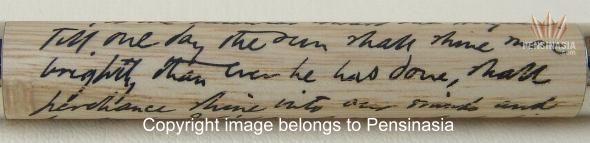 Till one day the sun shall shine more
brightly than ever he has done, shall
perchance shine into our minds and
PENSINASIA
Copyright image belongs to Pensinasia